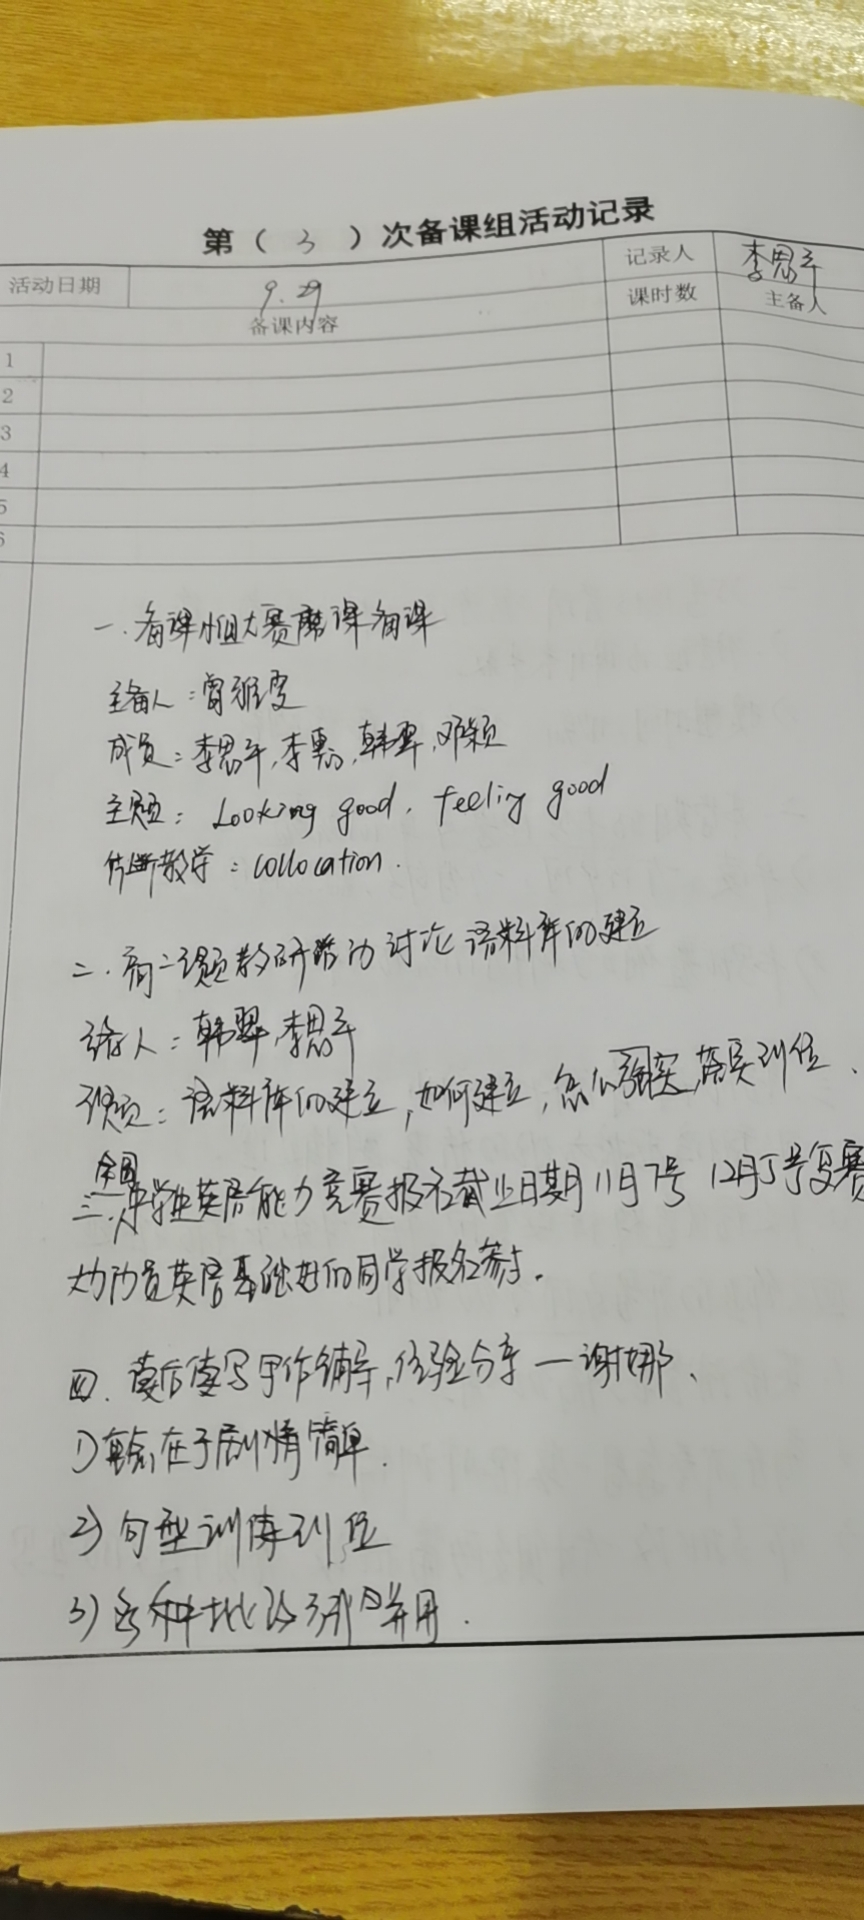 第（ 3 ）次备课组活动记录
活动日期 9.29 记录人 李思平
备课内容 课时数 主备人
1
2
3
4
5
6
一.备课小组大赛磨课备课
主备人：曾雅雯
成员：李思平,李惠,韩翠,邓颖
主题: Looking good, feeling good
教学：collocation.
二.教研活动讨论语料库的建立
人：韩翠,李思平
语料库的建立,如何建立,怎么落实到位.
全国
三.中学生英语能力竞赛报名截止日期11月7号 12月5号复赛
动员英语基础好的同学报名参与.
四.读后续写写作辅导,经验分享—谢娜.
1)在于剧情简单.
2)句型训练到位
3)各种批改并用.